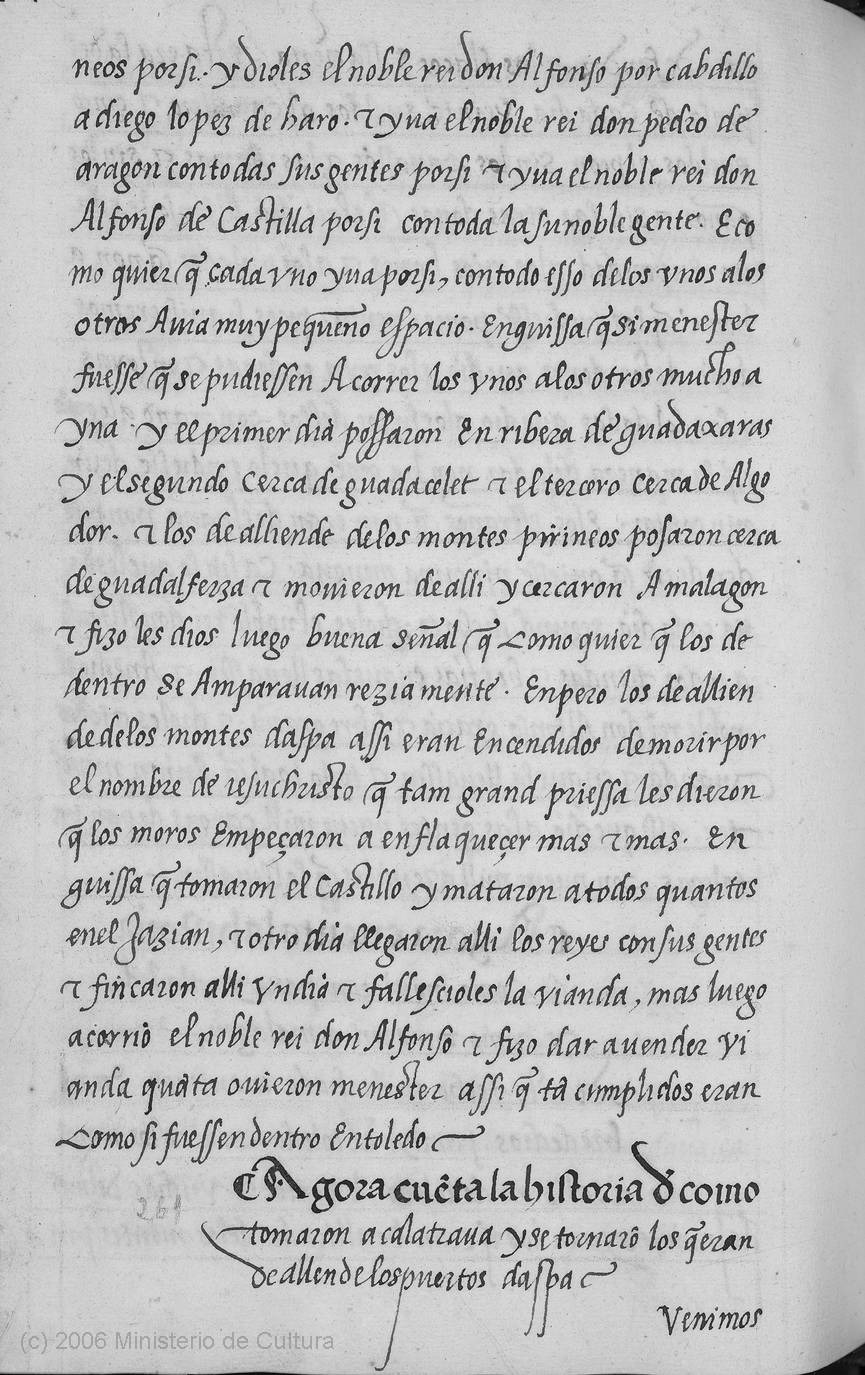 neos porsi. y dioles elnoble rei don Alfonso por cabdillo
a diego lopez de haro. τ yua elnoble rei don pedro de
aragon contodas susgentes porsi τ yua elnoble rei don
Alfonso de Castilla porsi contoda lasunoblegente. Eco
mo quier q̃ cada vno yua porsi, contodo esso delos vnos alos
otros Auia muy pequeño espacio. Enguissa q̃ si menester
fuesse q̃ se pudiessen Acorrer los vnos alos otros mucho a
yna y el primer dia possaron En ribera de guadaxaras
y elsegundo Cerca de guadacelet τ el tercero Cerca de Algo
dor. τ los de alliende delos montes pirineos posaron cerca
de guadalferza τ mouieron de alli y cercaron A malagon
τ fizo les dios luego buena señal q̃ Como quier q̃ los de
dentro se Amparauan reziamente. Enpero los de allien
de delos montes daspa assi eran Encendidos demorir por
el nombre de iesuchristo q̃ tam grand priessa les dieron
q̃ los moros Empeçaron a enflaqueçer mas τ mas. En
guissa q̃ tomaron el Castillo y mataron atodos quantos
enel Jazian, τ otro dia llegaron alli los reyes consus gentes
τ fincaron alli vndia τ fallescioles la vianda, mas luego
acorrio elnoble rei don Alfonso τ fizo dar auender vi
anda quãta ouieron menester assi q̃ tã cumplidos eran
Como si fuessen dentro Entoledo
Agora cuẽta la historia đ como
tomaron acalatraua y se tornarõ los q̃ eran
de allende los puertos daspa
261
Venimos
(c) 2006 Ministerio de Cultura